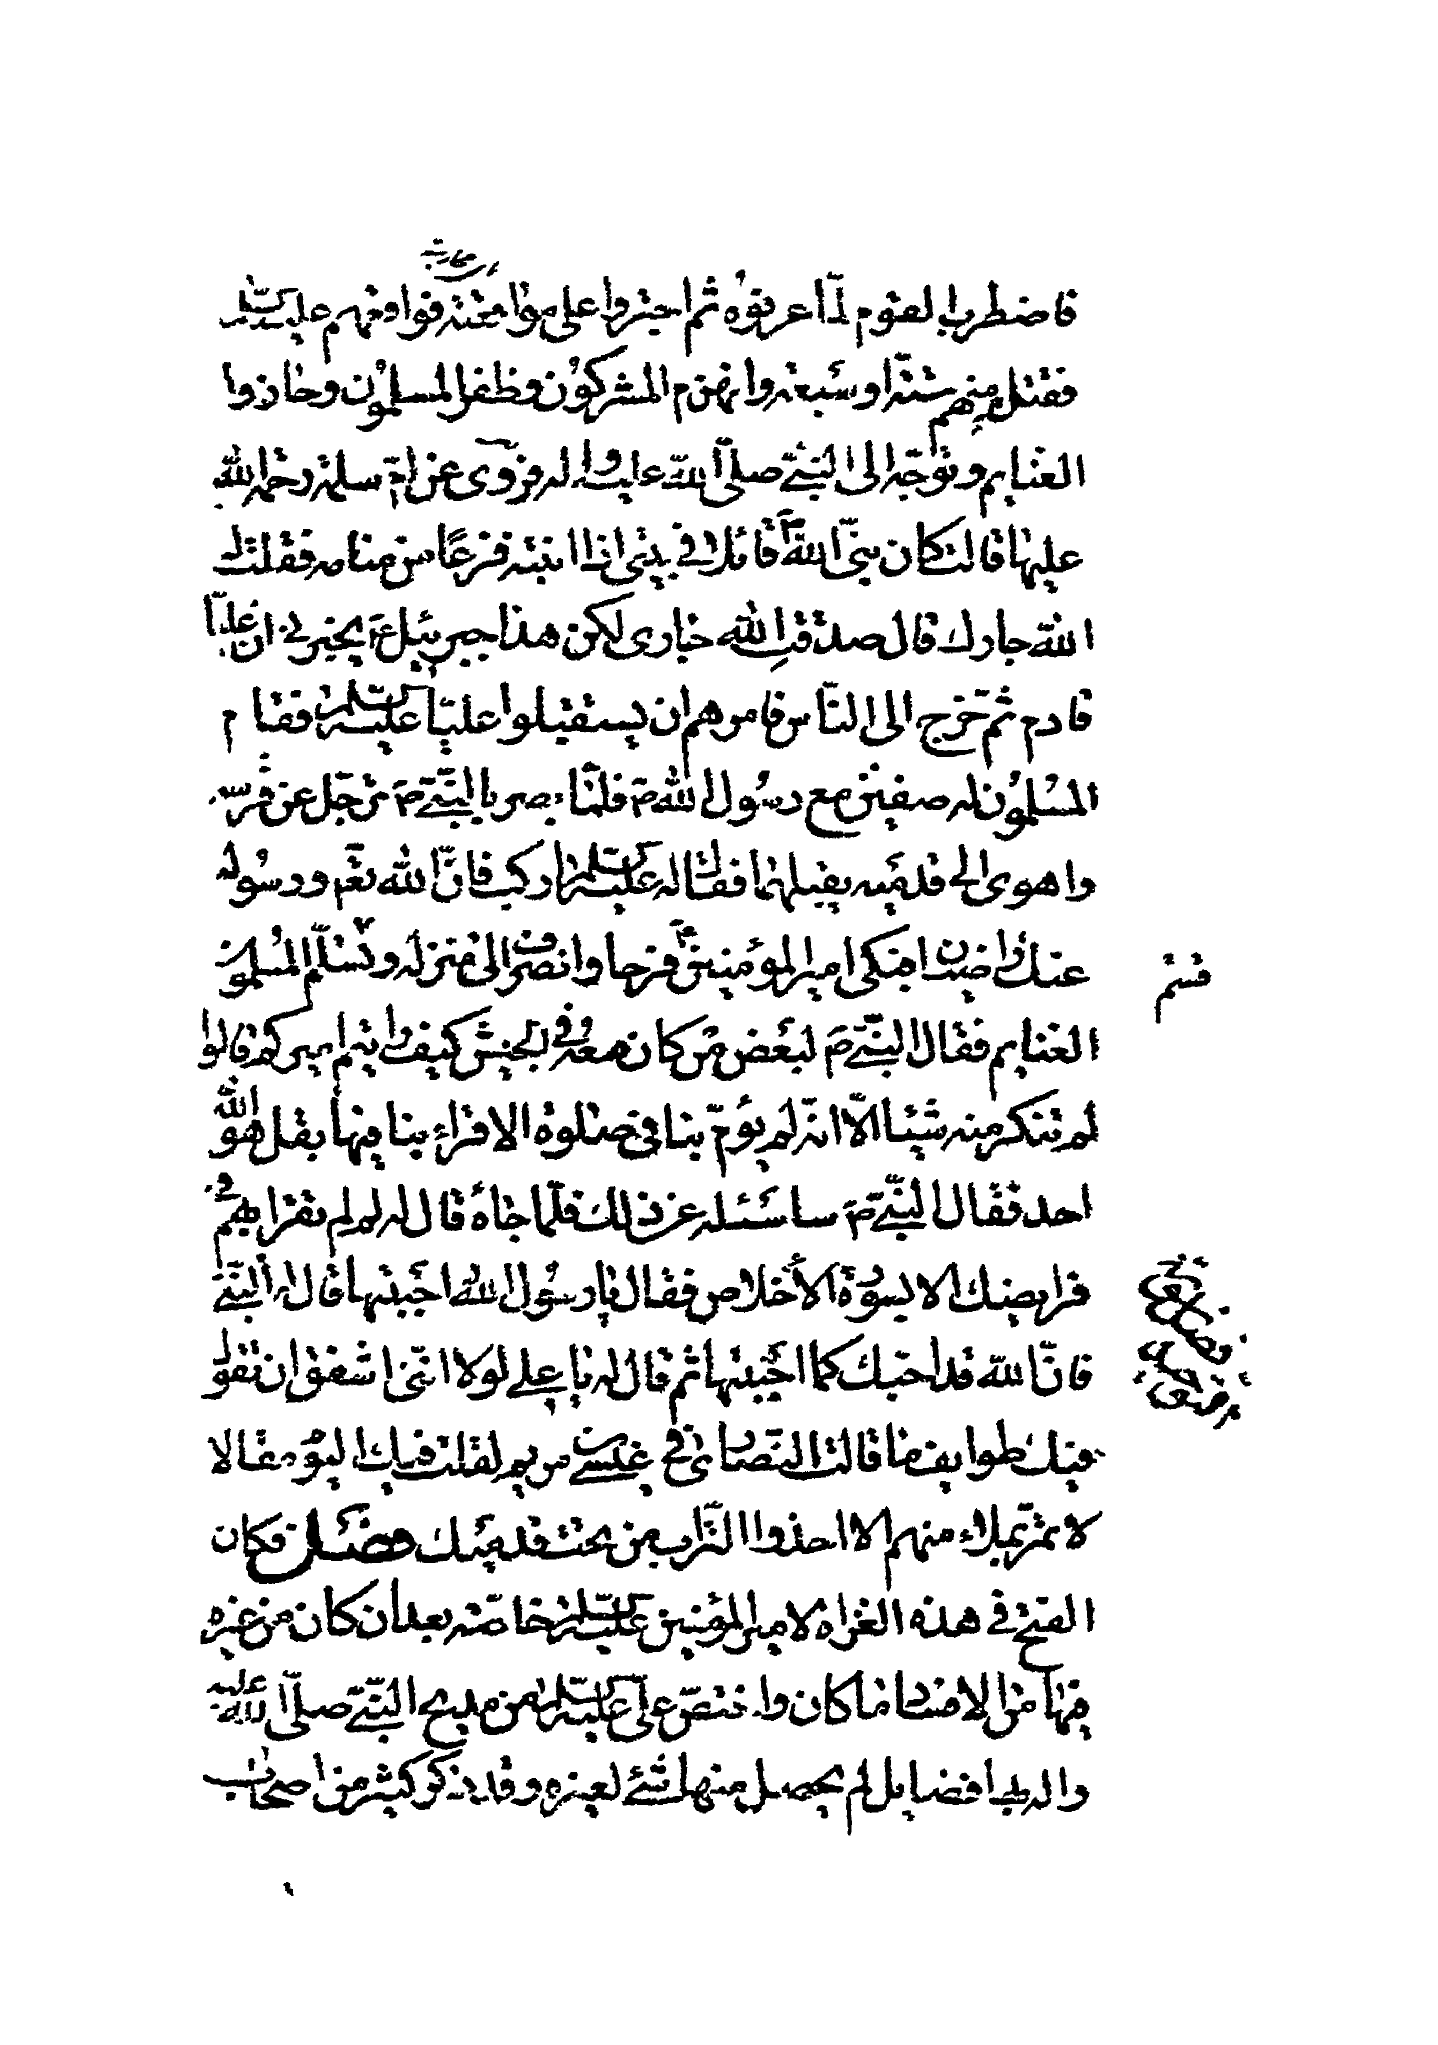 محاربته
فاضطرب القوم لمّا عرفوه ثم اجتروا على مواقعته فواقعهم عليه السلام
فقتل منهم ستة او سبعة وانهزم المشركون وظفر المسلمون وحازوا
الغنايم وتوجّه الى النبيّ صلّى اللّه عليه واله فروى عن امّ سلمة رحمة اللّه
عليها قالت كان نبىّ اللّه ص قائلا فى بيتى اذا انتبه فزعًا من منامه فقلت له
اللّه جارك قال صدقتِ اللّه جارى لكن هذا جبرئيل ع يخبرنى ان عليّا
قادم ثم خرج الى النّاس فامرهم ان يستقبلوا عليّا عليه السلم فقام
المسلمون له صفين مع رسول اللّه ص فلمّا بصر بالنبيّ ص ترجّل عن فرسه
واهوى الى قدميه يقبلهما فقال له عليه السلم اركب فانّ اللّه تعم ورسوله
عنك راضيان فبكى امير المؤمنين ع فرحا وانصرف الى منزله وتسلّم المسلمون
الغنايم فقال النبيّ ص لبعض من كان معه فى الجيش كيف رايتم اميركم قالوا
لم تنكر منه شيئا الّا انه لم يؤمّ بنا فى صلوة الا قراء بنا فيها بقل هو اللّه
احد فقال النبيّ ص ساسئله عن ذلك فلمّا جاءه قال له لم لم تقرا بهم فى
فرايضك الا بسورة الأخلاص فقال يا رسول اللّه احببتها قال له النبيّ
فانّ اللّه قد احبّك كما احببتها ثم قال له يا على لولا انّنى اشفق ان تقول
فيك طوايف ما قالت النصارى فى عيسى بن مريم لقلت فيك اليوم مقالا
لا تمرّ بملاء منهم الا اخذوا التراب من تحت قدميك فصل فكان
الفتح فى هذه الغزاة لامير المؤمنين عليه السلم خاصّة بعد ان كان من غيره
فيها من الافساد ما كان واختصّ علىّ عليه السلم من مديح النبيّ صلّى اللّه عليه
واله بها فضايل لم يحصل منها شئ لغيره وقد ذكر كثير من اصحاب
قسم